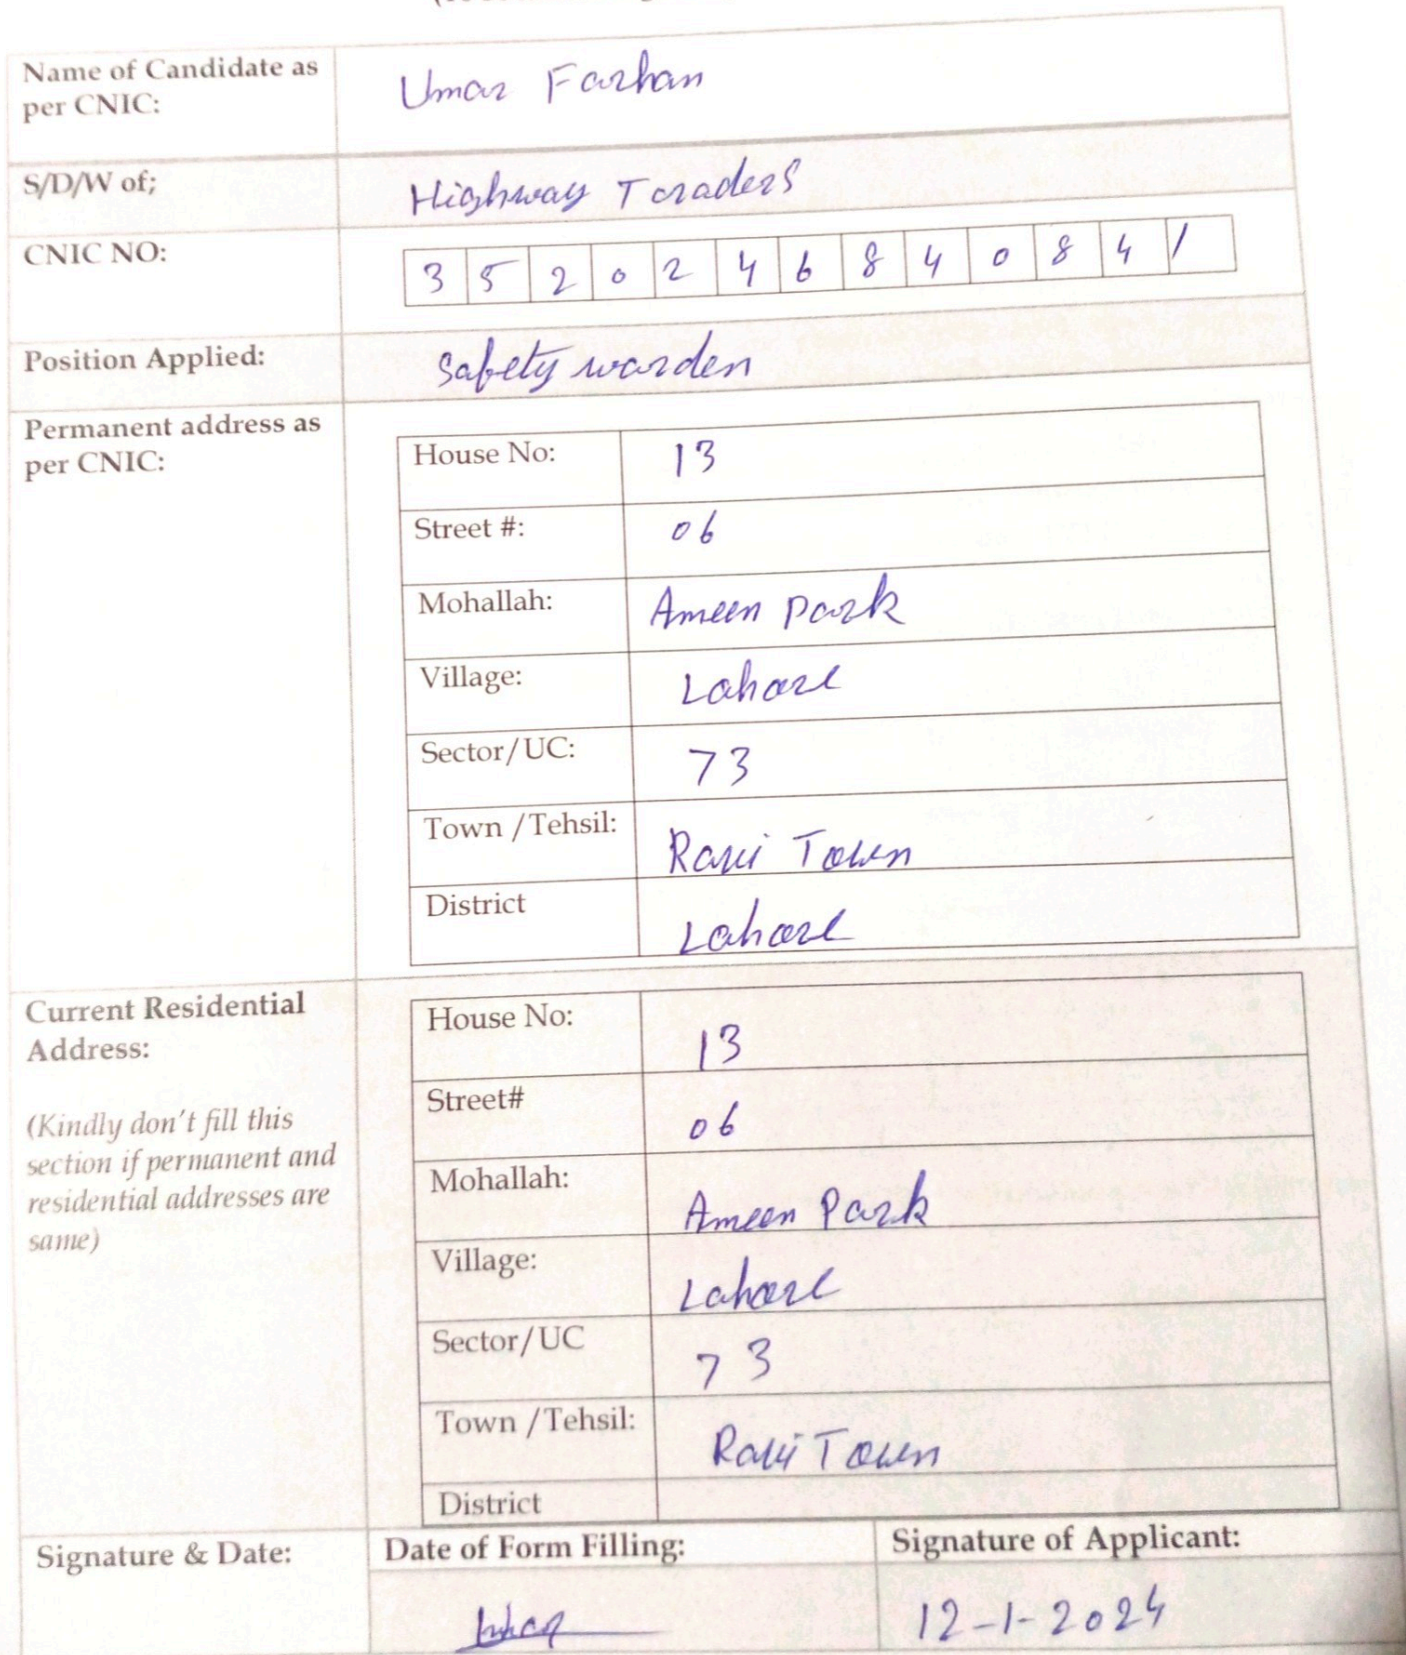 Name of Candidate as per CNIC: Umar Farhan
S/D/W of; Highway Traders
CNIC NO: 3 5 2 0 2 4 6 8 4 0 8 4 1
Position Applied: Safety warden
Permanent address as per CNIC:
House No: 13
Street #: 06
Mohallah: Ameen Park
Village: Lahore
Sector/UC: 73
Town /Tehsil: Ravi Town
District Lahore
Current Residential Address:
(Kindly don't fill this section if permanent and residential addresses are same)
House No: 13
Street# 06
Mohallah: Ameen Park
Village: Lahore
Sector/UC 73
Town /Tehsil: Ravi Town
District
Signature & Date: Date of Form Filling: Signature of Applicant:
12-1-2024